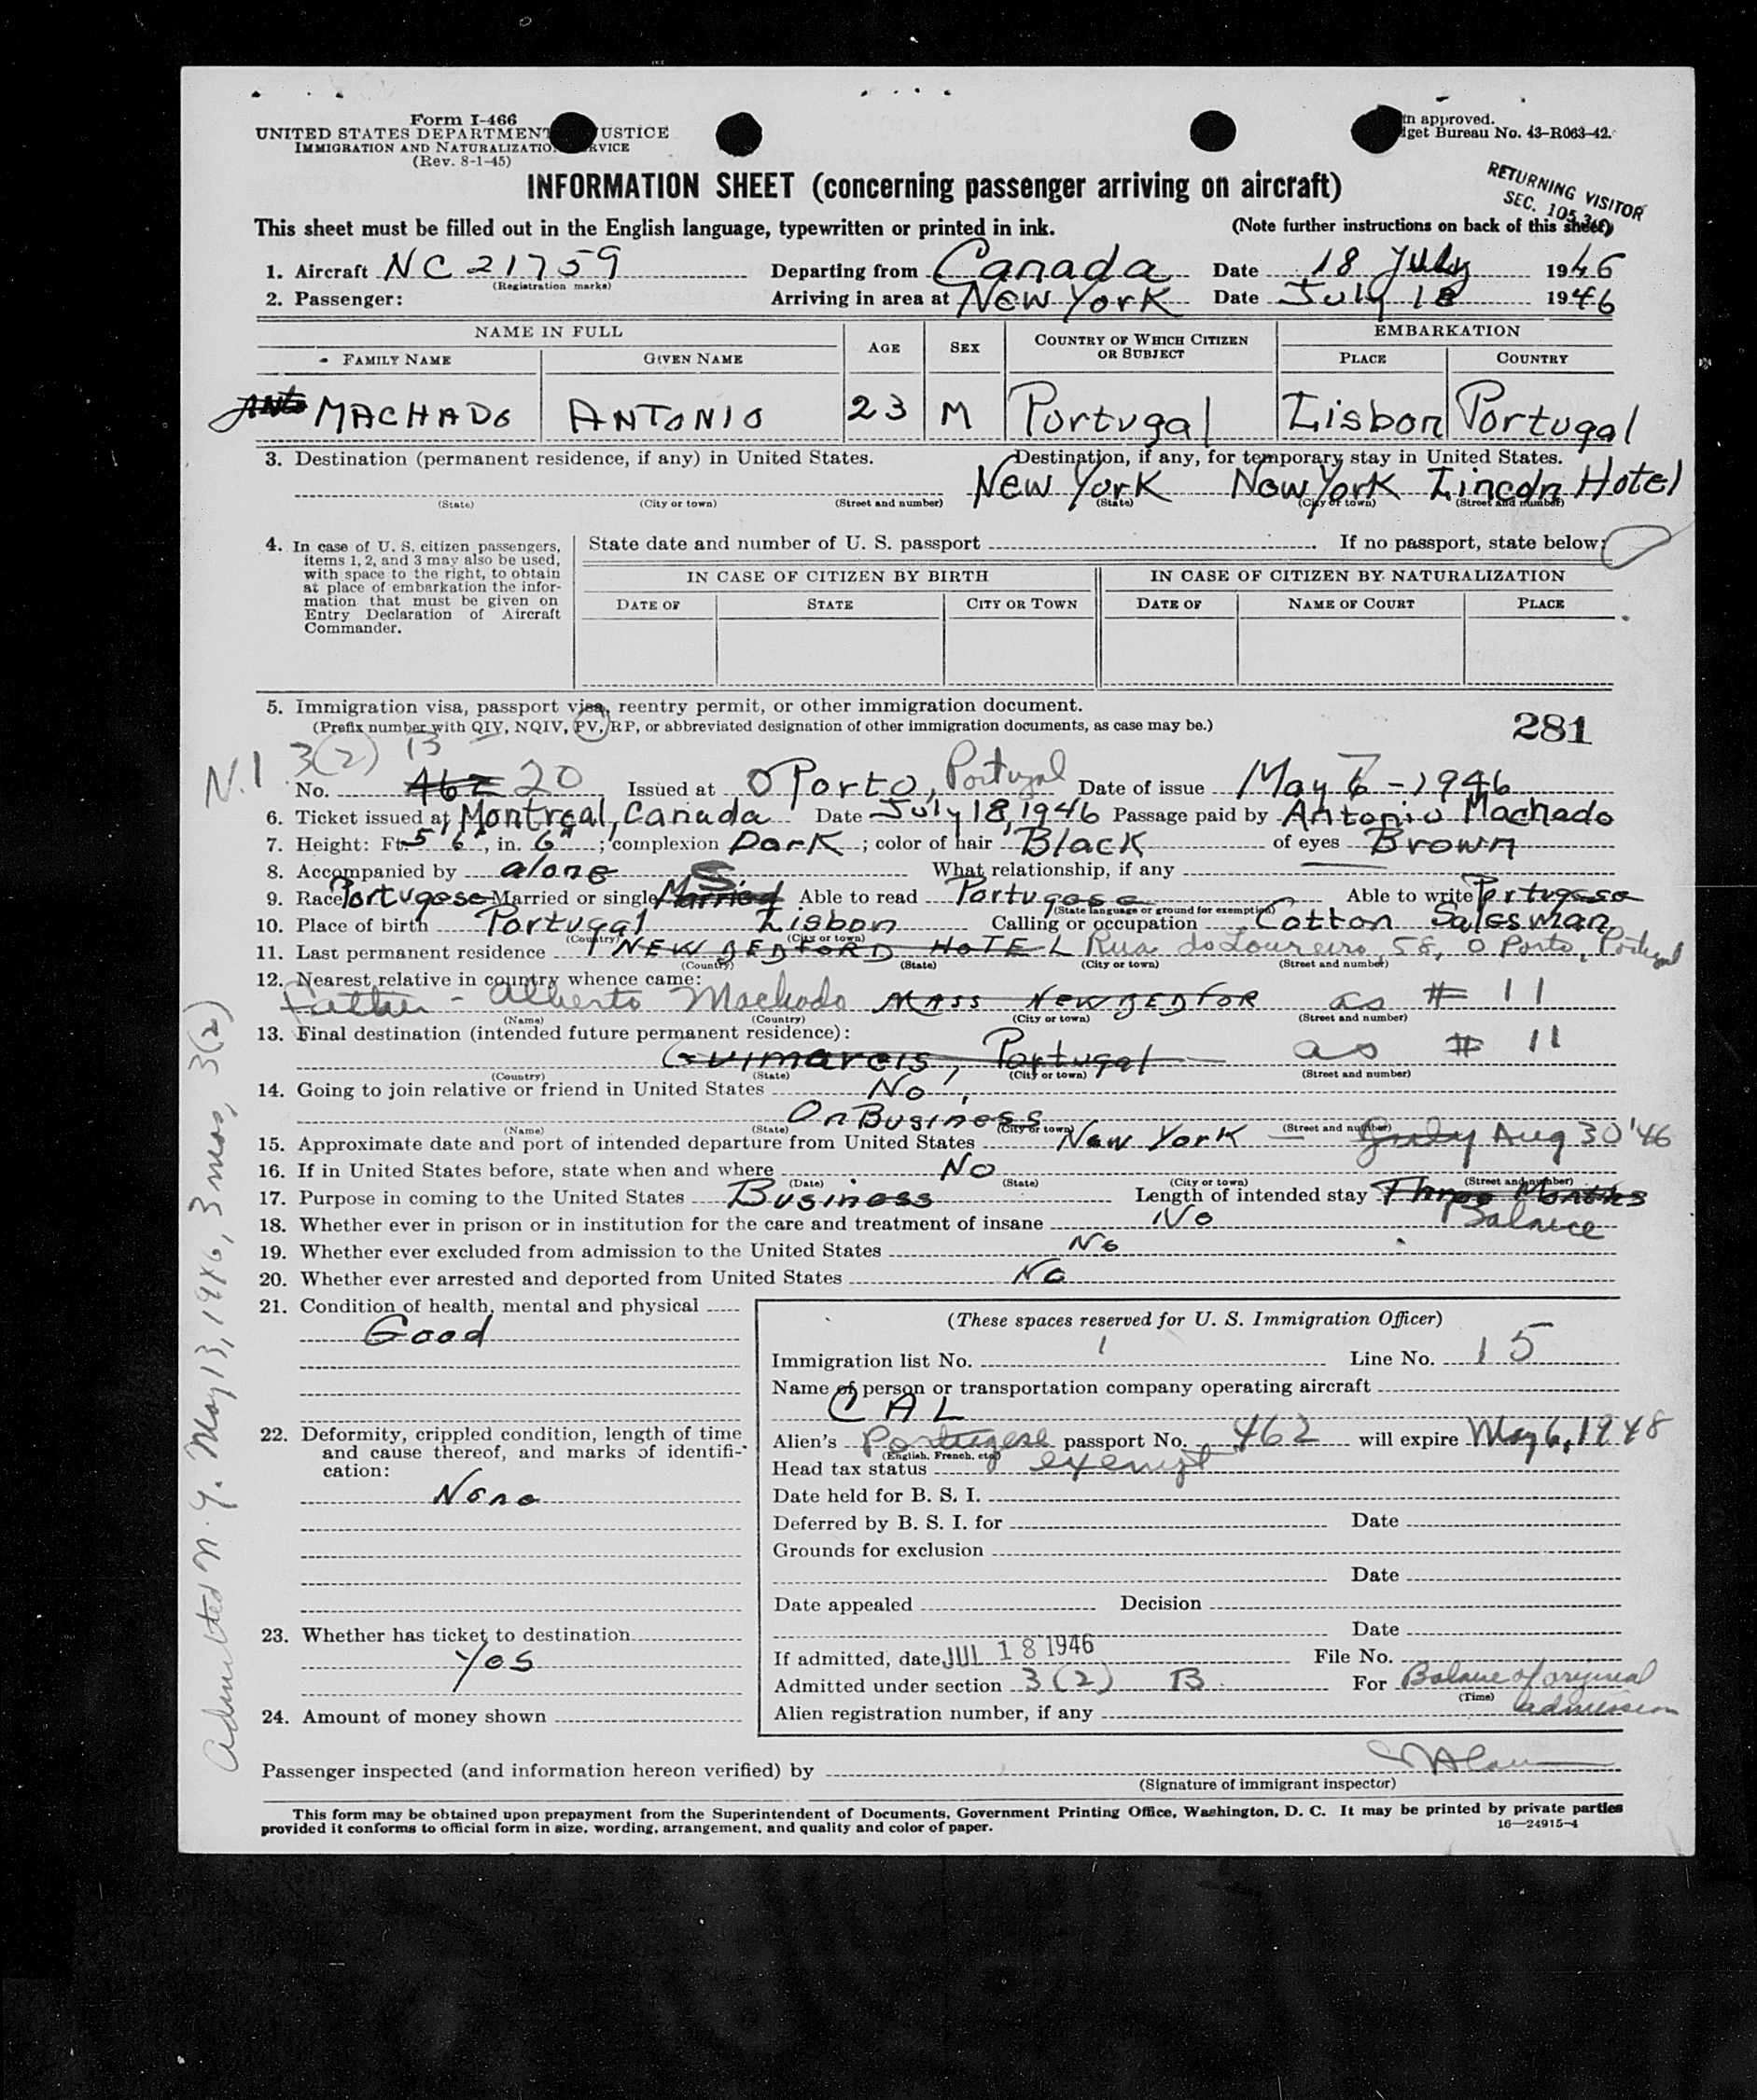 Form I-466
UNITED STATES DEPARTMENT USTICE
IMMIGRATION AND NATURALIZATIO RVICE
(Rev. 8-1-45)
m approved.
get Bureau No. 43-R063-42.
RETURNING VISITOR
SEC. 105.3
INFORMATION SHEET (concerning passenger arriving on aircraft)
This sheet must be filled out in the English language, typewritten or printed in ink. (Note further instructions on back of this sheet)
1. Aircraft NC 21759 Departing from Canada Date 18 July 1946
(Registration marks)
2. Passenger: Arriving in area at New York Date July 18 1946
NAME IN FULL AGE SEX COUNTRY OF WHICH CITIZEN OR SUBJECT EMBARKATION
FAMILY NAME GIVEN NAME PLACE COUNTRY
MACHADO ANTONIO 23 M Portugal Lisbon Portugal
3. Destination (permanent residence, if any) in United States. Destination, if any, for temporary stay in United States.
New York New York Lincoln Hotel
(State) (City or town) (Street and number) (State) (City or town) (Street and number)
4. In case of U. S. citizen passengers, items 1, 2, and 3 may also be used, with space to the right, to obtain at place of embarkation the information that must be given on Entry Declaration of Aircraft Commander.
State date and number of U. S. passport If no passport, state below:
IN CASE OF CITIZEN BY BIRTH IN CASE OF CITIZEN BY NATURALIZATION
DATE OF STATE CITY OR TOWN DATE OF NAME OF COURT PLACE
5. Immigration visa, passport visa, reentry permit, or other immigration document.
(Prefix number with QIV, NQIV, PV, RP, or abbreviated designation of other immigration documents, as case may be.)
281
N.I 3(2) B
No. 462 20 Issued at OPorto, Portugal Date of issue May 6-1946
6. Ticket issued at Montreal, Canada Date July 18, 1946 Passage paid by Antonio Machado
7. Height: Ft. 5' 6", in. 6"; complexion Dark; color of hair Black of eyes Brown
8. Accompanied by alone What relationship, if any
9. Race Portugese Married or single Married S. Able to read Portugese Able to write Portugese
(State language or ground for exemption)
10. Place of birth Portugal Lisbon Calling or occupation Cotton Salesman
(Country) (City or town)
11. Last permanent residence NEW BEDFORD HOTEL Rua do Loureiro 58, O Porto, Portugal
(Country) (State) (City or town) (Street and number)
12. Nearest relative in country whence came:
Father - Alberto Machado MASS NEW BEDFOR as # 11
(Name) (Country) (City or town) (Street and number)
13. Final destination (intended future permanent residence):
Guimareis, Portugal as # 11
(Country) (State) (City or town) (Street and number)
14. Going to join relative or friend in United States No,
On Business
(Name) (State) (City or town) (Street and number)
15. Approximate date and port of intended departure from United States New York — July Aug 30 '46
16. If in United States before, state when and where No
(Date) (State) (City or town) (Street and number)
17. Purpose in coming to the United States Business Length of intended stay Three Months
Balance
18. Whether ever in prison or in institution for the care and treatment of insane No
19. Whether ever excluded from admission to the United States No
20. Whether ever arrested and deported from United States No
21. Condition of health, mental and physical
Good
22. Deformity, crippled condition, length of time and cause thereof, and marks of identification:
None
23. Whether has ticket to destination
Yes
24. Amount of money shown
(These spaces reserved for U. S. Immigration Officer)
Immigration list No. 1 Line No. 15
Name of person or transportation company operating aircraft
CAL
Alien's Portugese passport No. 462 will expire May 6, 1948
(English, French, etc.)
Head tax status exempt
Date held for B. S. I.
Deferred by B. S. I. for Date
Grounds for exclusion
Date
Date appealed Decision
Date
If admitted, date JUL 18 1946 File No.
Admitted under section 3(2) B. For Balance of original admission
(Time)
Alien registration number, if any
Passenger inspected (and information hereon verified) by
(Signature of immigrant inspector)
This form may be obtained upon prepayment from the Superintendent of Documents, Government Printing Office, Washington, D. C. It may be printed by private parties
provided it conforms to official form in size, wording, arrangement, and quality and color of paper.
16—24915-4
Admitted N.Y. May 13, 1946, 3 mos, 3(2)